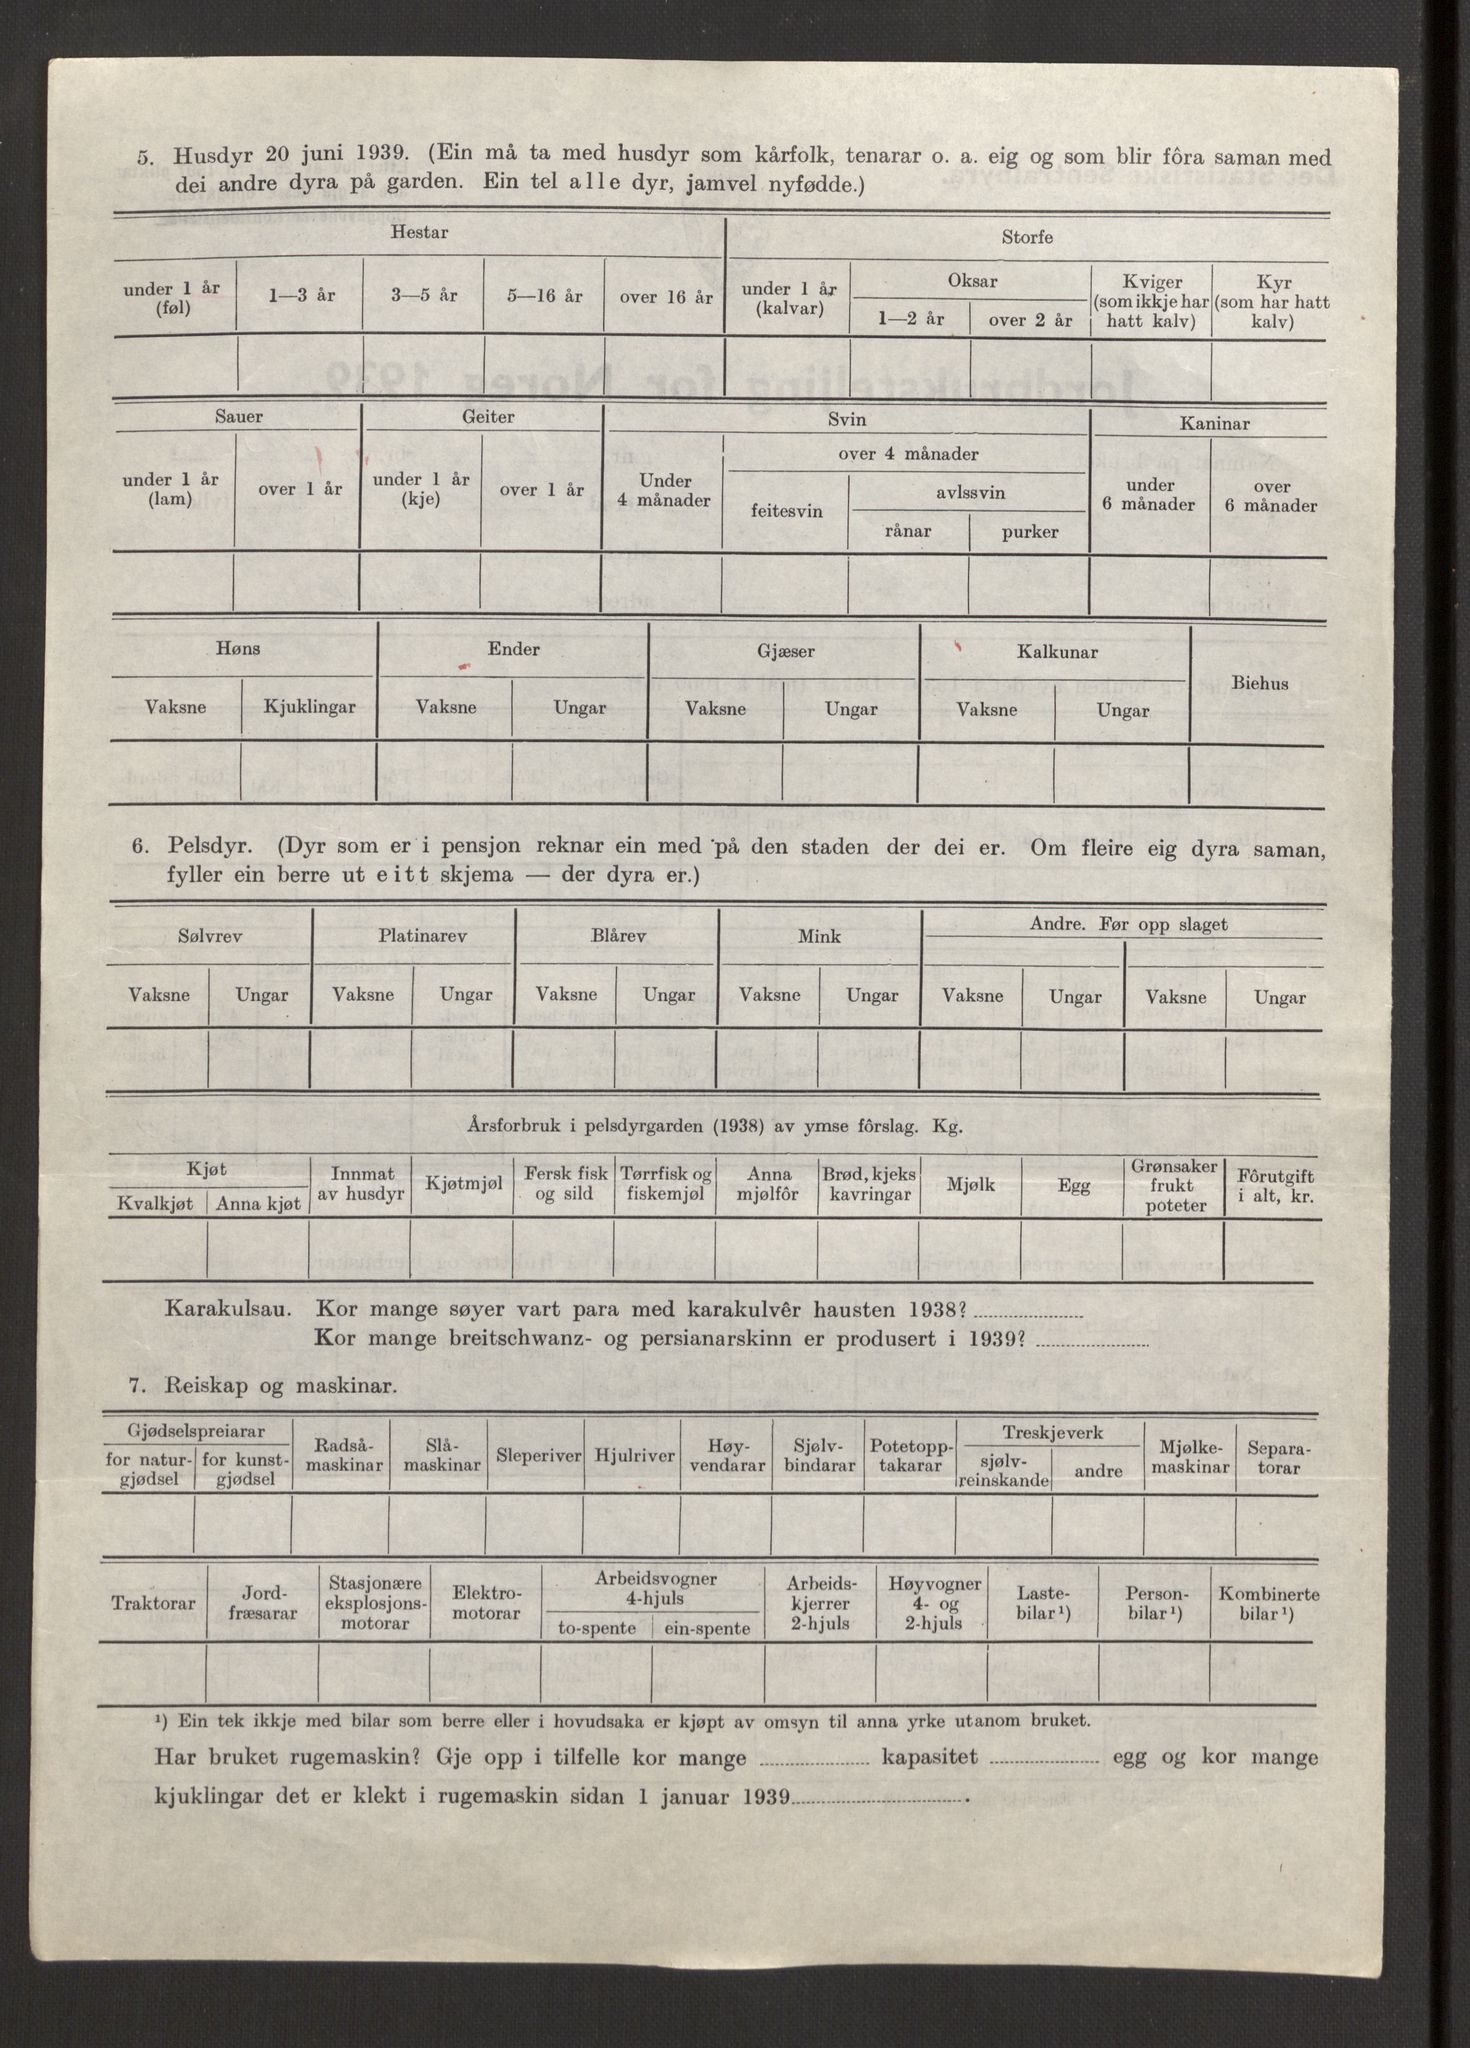 5. Husdyr 20 juni 1939. (Ein må ta med husdyr som kårfolk, tenarar o. a. eig og som blir fôra saman med
dei andre dyra på garden. Ein tel alle dyr, jamvel nyfødde.)
Hestar
Storfe
under 1 år (føl)
1—3 år
3—5 år
5—16 år
over 16 år
under 1 år (kalvar)
Oksar
1—2 år
over 2 år
Kviger (som ikkje har hatt kalv)
Kyr (som har hatt kalv)
Sauer
Geiter
Svin
Kaninar
under 1 år (lam)
over 1 år
under 1 år (kje)
over 1 år
Under 4 månader
over 4 månader
feitesvin
avlssvin
rånar
purker
under 6 månader
over 6 månader
Høns
Ender
Gjæser
Kalkunar
Biehus
Vaksne
Kjuklingar
Vaksne
Ungar
Vaksne
Ungar
Vaksne
Ungar
6. Pelsdyr. (Dyr som er i pensjon reknar ein med på den staden der dei er. Om fleire eig dyra saman,
fyller ein berre ut eitt skjema — der dyra er.)
Sølvrev
Platinarev
Blårev
Mink
Andre. Før opp slaget
Vaksne
Ungar
Vaksne
Ungar
Vaksne
Ungar
Vaksne
Ungar
Vaksne
Ungar
Vaksne
Ungar
Årsforbruk i pelsdyrgarden (1938) av ymse fôrslag. Kg.
Kjøt
Kvalkjøt
Anna kjøt
Innmat av husdyr
Kjøtmjøl
Fersk fisk og sild
Tørrfisk og fiskemjøl
Anna mjølfôr
Brød, kjeks kavringar
Mjølk
Egg
Grønsaker frukt poteter
Fôrutgift i alt, kr.
Karakulsau. Kor mange søyer vart para med karakulvêr hausten 1938?
Kor mange breitschwanz- og persianarskinn er produsert i 1939?
7. Reiskap og maskinar.
Gjødselspreiarar
for natur-gjødsel
for kunst-gjødsel
Radså-maskinar
Slå-maskinar
Sleperiver
Hjulriver
Høy-vendarar
Sjølv-bindarar
Potetopp-takarar
Treskjeverk
sjølv-reinskande
andre
Mjølke-maskinar
Separa-torar
Traktorar
Jord-fræsarar
Stasjonære eksplosjons-motorar
Elektro-motorar
Arbeidsvogner 4-hjuls
to-spente
ein-spente
Arbeids-kjerrer 2-hjuls
Høyvogner 4- og 2-hjuls
Laste-bilar ¹)
Person-bilar ¹)
Kombinerte bilar ¹)
¹) Ein tek ikkje med bilar som berre eller i hovudsaka er kjøpt av omsyn til anna yrke utanom bruket.
Har bruket rugemaskin? Gje opp i tilfelle kor mange kapasitet egg og kor mange
kjuklingar det er klekt i rugemaskin sidan 1 januar 1939.